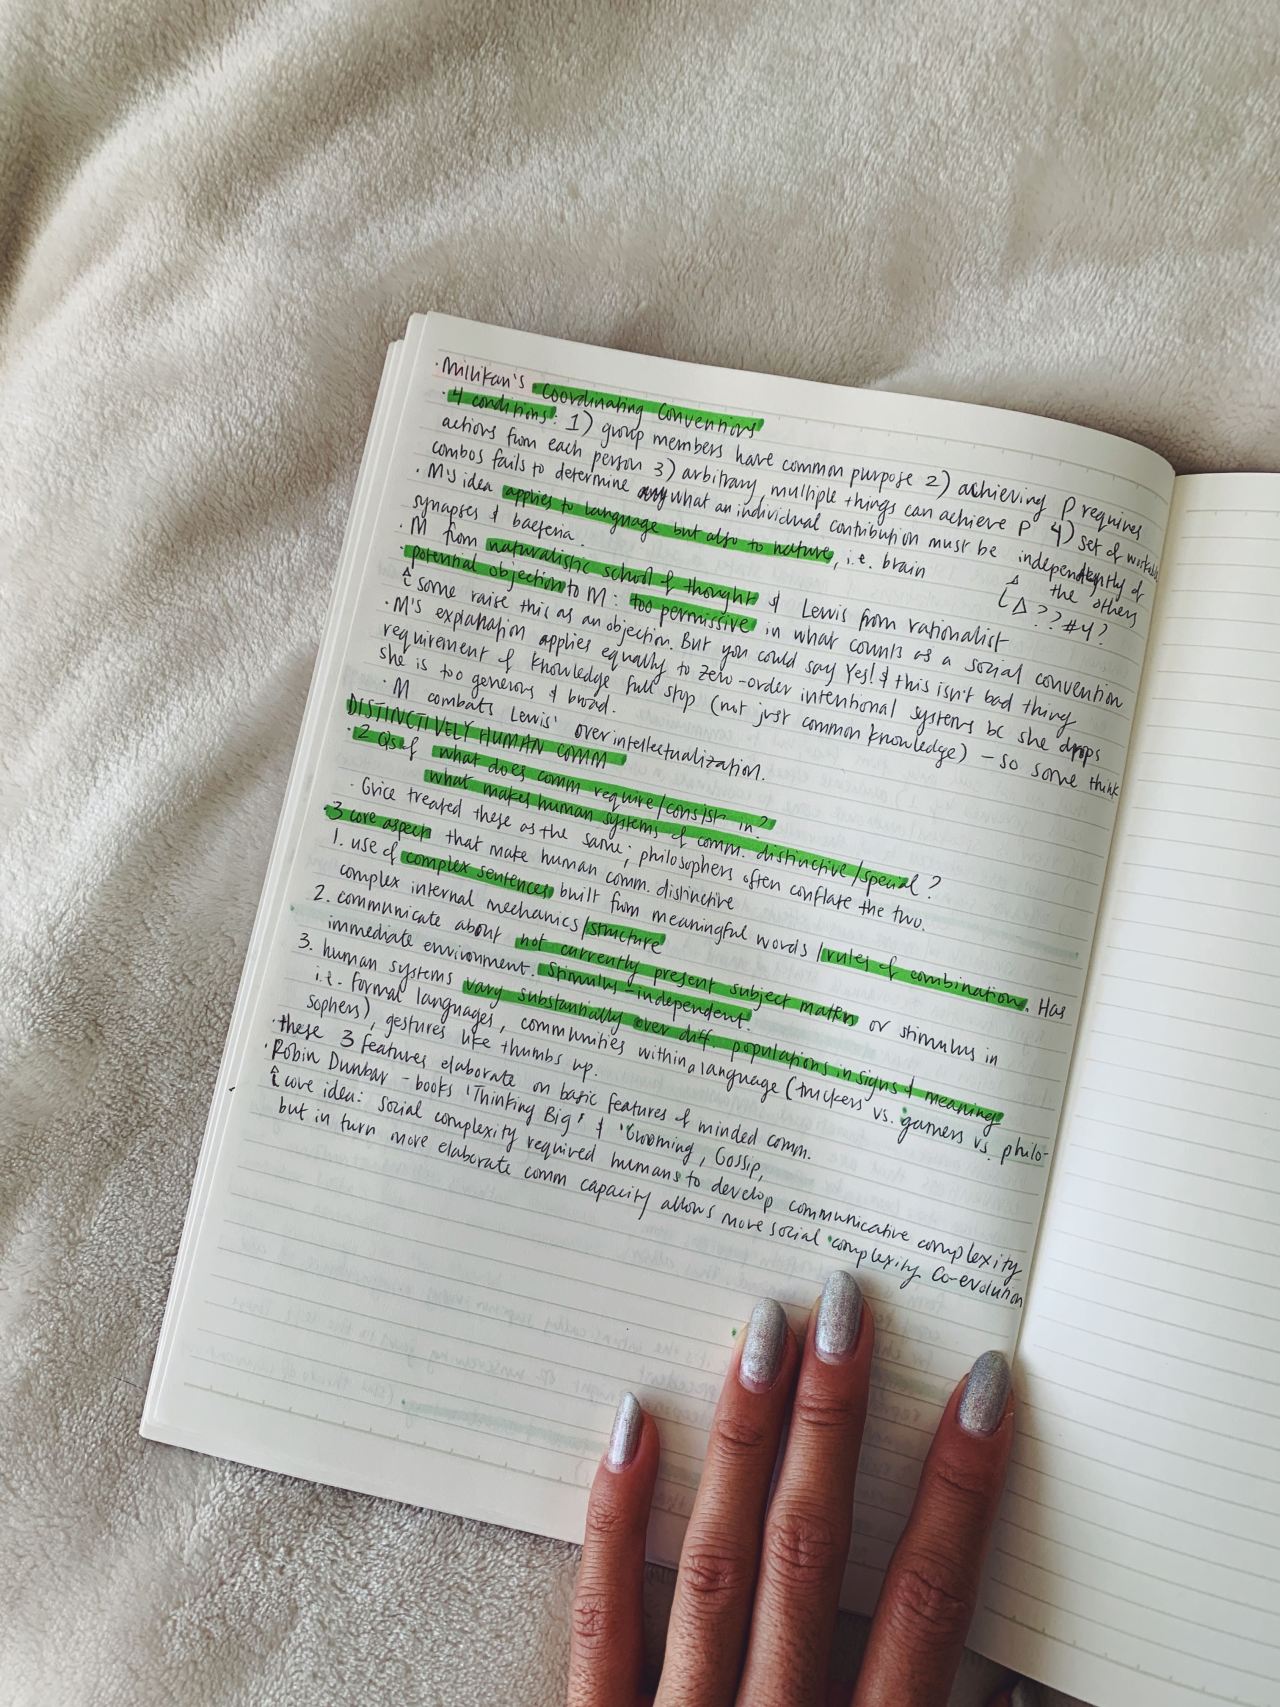 · Millikan's Coordinating Conventions
· 4 conditions: 1) group members have common purpose 2) achieving p requires
actions from each person 3) arbitrary, multiple things can achieve p 4) set of workable
combos fails to determine what an individual contribution must be independently of
the others
Δ??#4?
· M's idea applies to language but also to nature, i.e. brain
synapses & bacteria.
· M from naturalistic school of thought & Lewis from rationalist
· potential objection to M: too permissive in what counts as a social convention
some raise this as an objection. But you could say Yes! & this isn't bad thing
· M's explanation applies equally to zero-order intentional systems bc she drops
requirement of knowledge full stop (not just common knowledge) – so some think
she is too generous & broad.
· M combats Lewis' overintellectualization.
DISTINCTIVELY HUMAN COMM
· 2 Qs of what does comm require/consist in?
what makes human systems of comm. distinctive/special?
· Grice treated these as the same; philosophers often conflate the two.
· 3 core aspects that make human comm. distinctive
1. use of complex sentences built from meaningful words/rules of combination. Has
complex internal mechanics/structure
2. communicate about not currently present subject matters or stimulus in
immediate environment. Stimulus-independent.
3. human systems vary substantially over diff. populations in signs & meanings
i.e. formal languages, communities within a language (truckers vs. gamers vs. philo-
sophers), gestures like thumbs up.
· these 3 features elaborate on basic features of minded comm.
· Robin Dunbar – books 'Thinking Big' & 'Grooming, Gossip,
core idea: social complexity required humans to develop communicative complexity
but in turn more elaborate comm capacity allows more social complexity Co-evolution